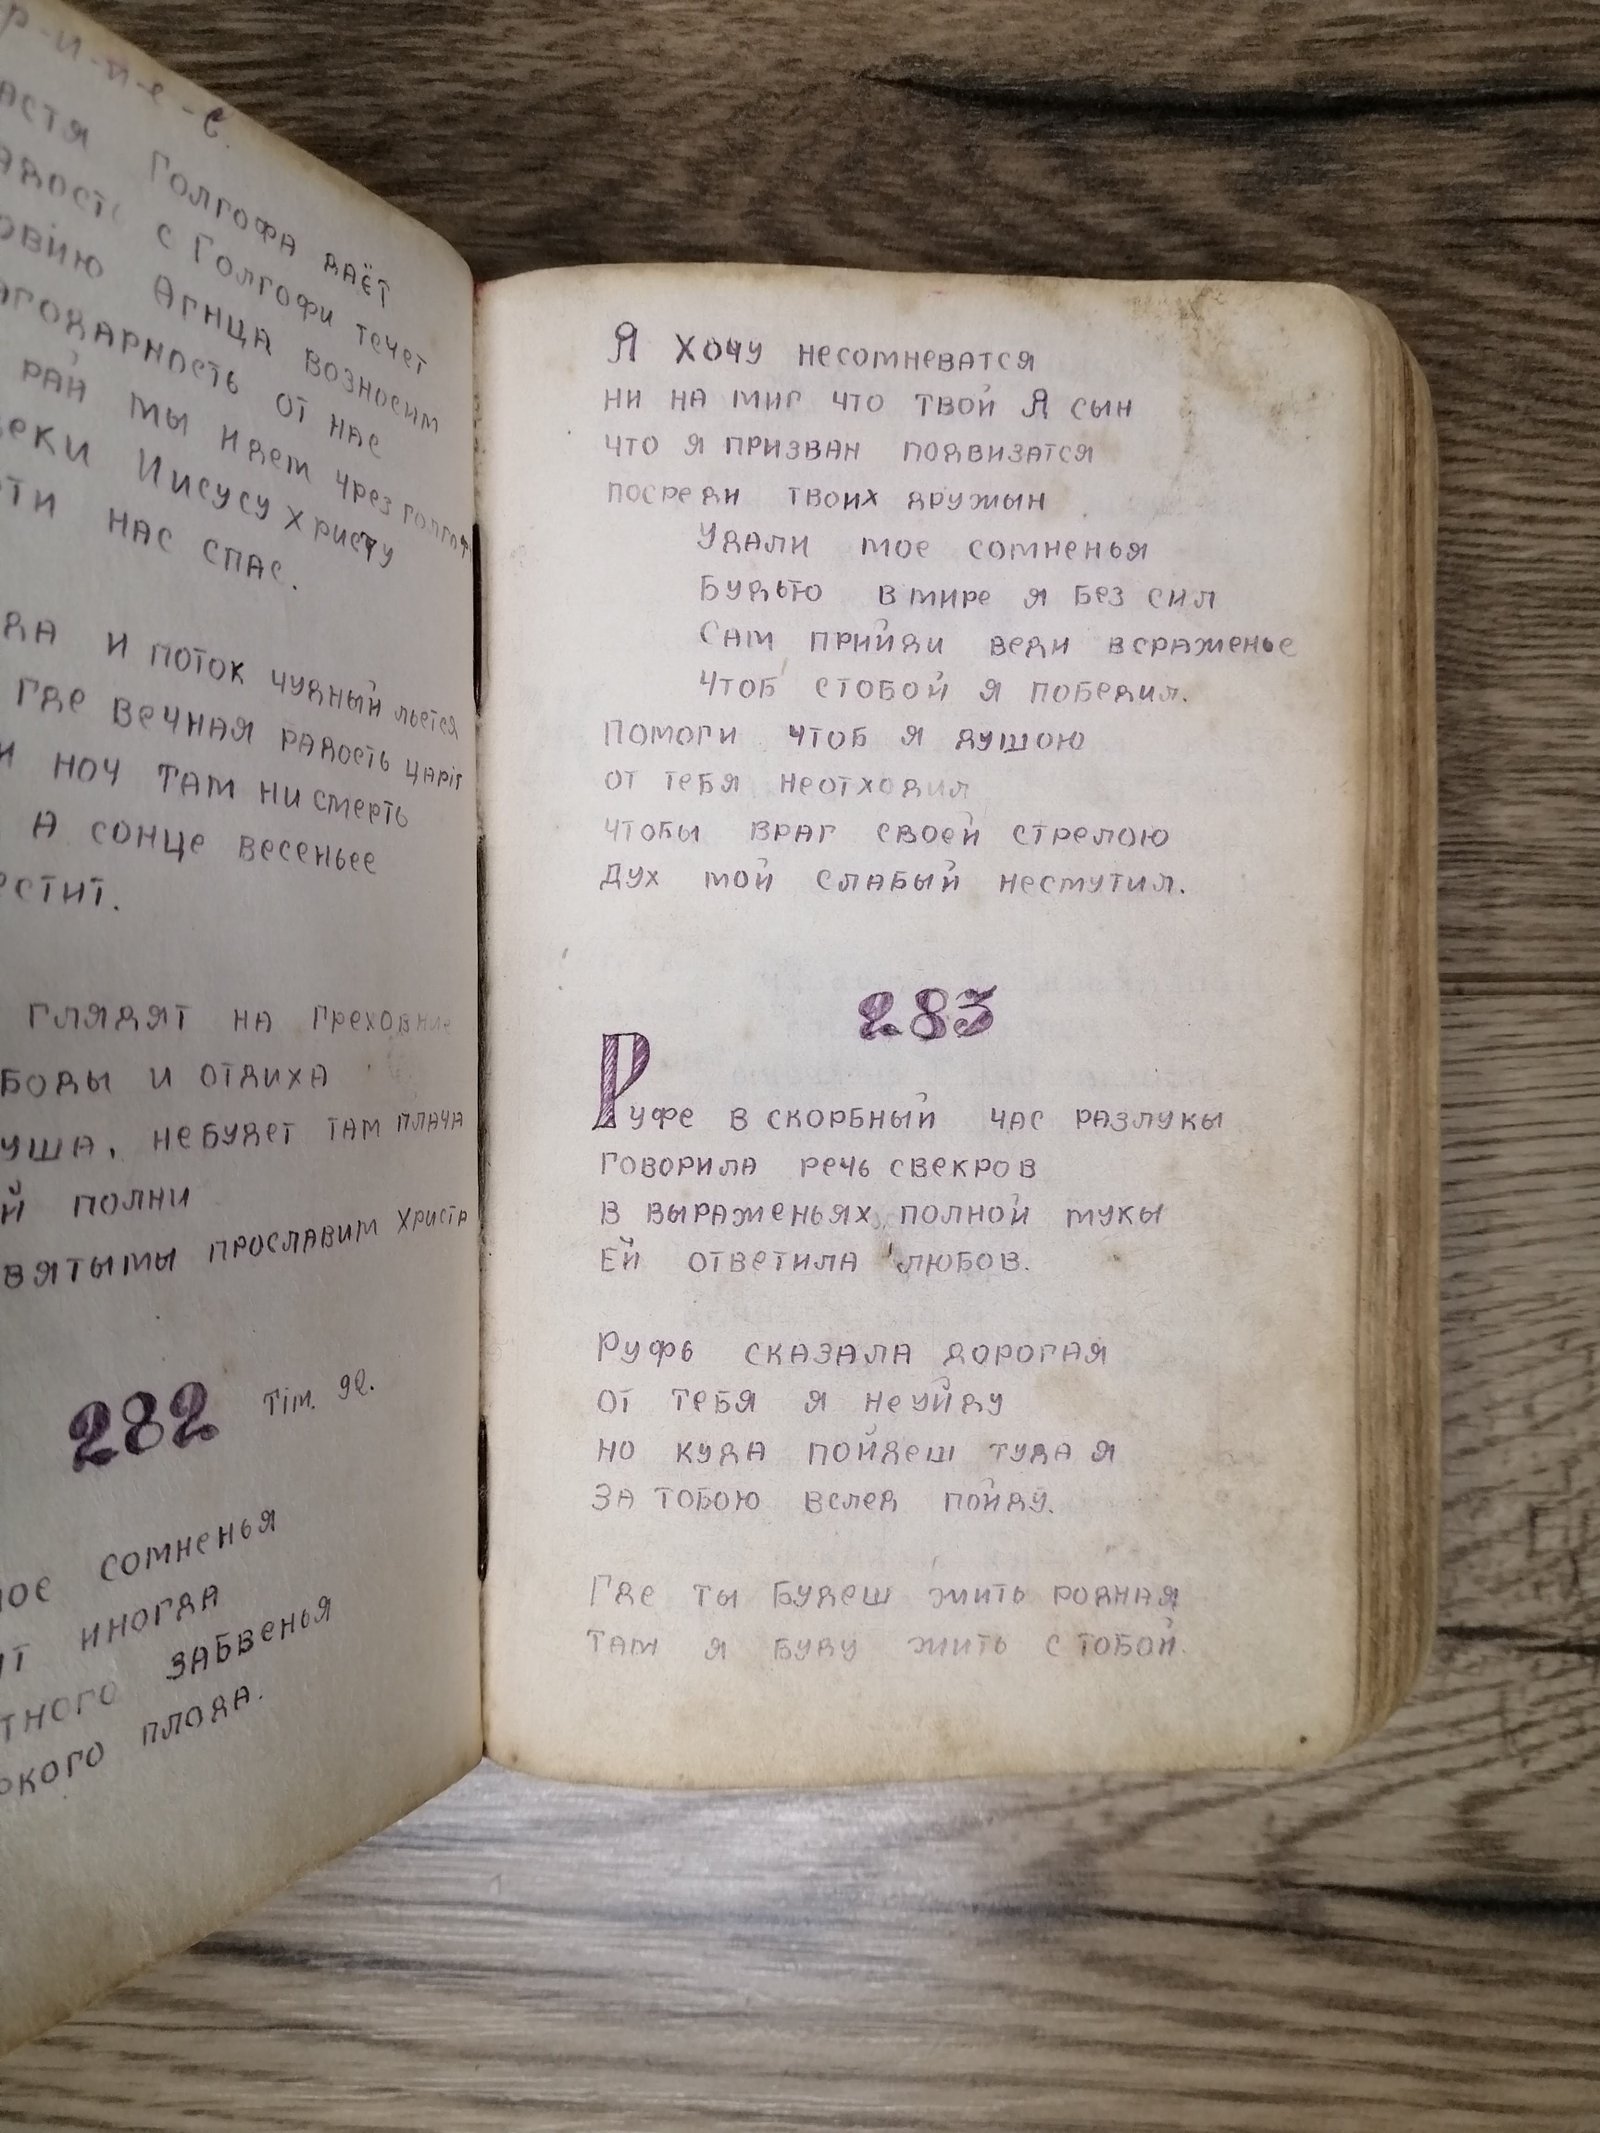 Голгофа даёт
с Голгофи течет
Агнца возносим
от нас
рай мы идем чрез
Иисусу Христу
нас спас.
и поток чудный льется
где вечная радость царіт
ноч там ни смерть
А сонце весеньее
глядят на греховние
и отдиха
небудет там плача
полни
прославим Христа
282 Тім. 92.
сомненья
иногда
забвенья
плода.
Я хочу несомневатся
ни на миг что твой Я сын
что я призван подвизатся
посреди твоих дружын
Удали мое сомненья
Будьто вмире я без сил
Сам прийди веди всраженье
Чтоб стобой я победил.
Помоги чтоб я душою
от тебя неотходил
чтобы враг своей стрелою
Дух мой слабый несмутил.
283
Руфе в скорбный час разлукы
говорила речь свекров
в выраженьях полной мукы
Ей ответила любов.
Руфь сказала дорогая
от тебя я неуйду
но куда пойдеш туда я
за тобою вслед пойду.
Где ты будеш жить родная
там я буду жить с тобой.